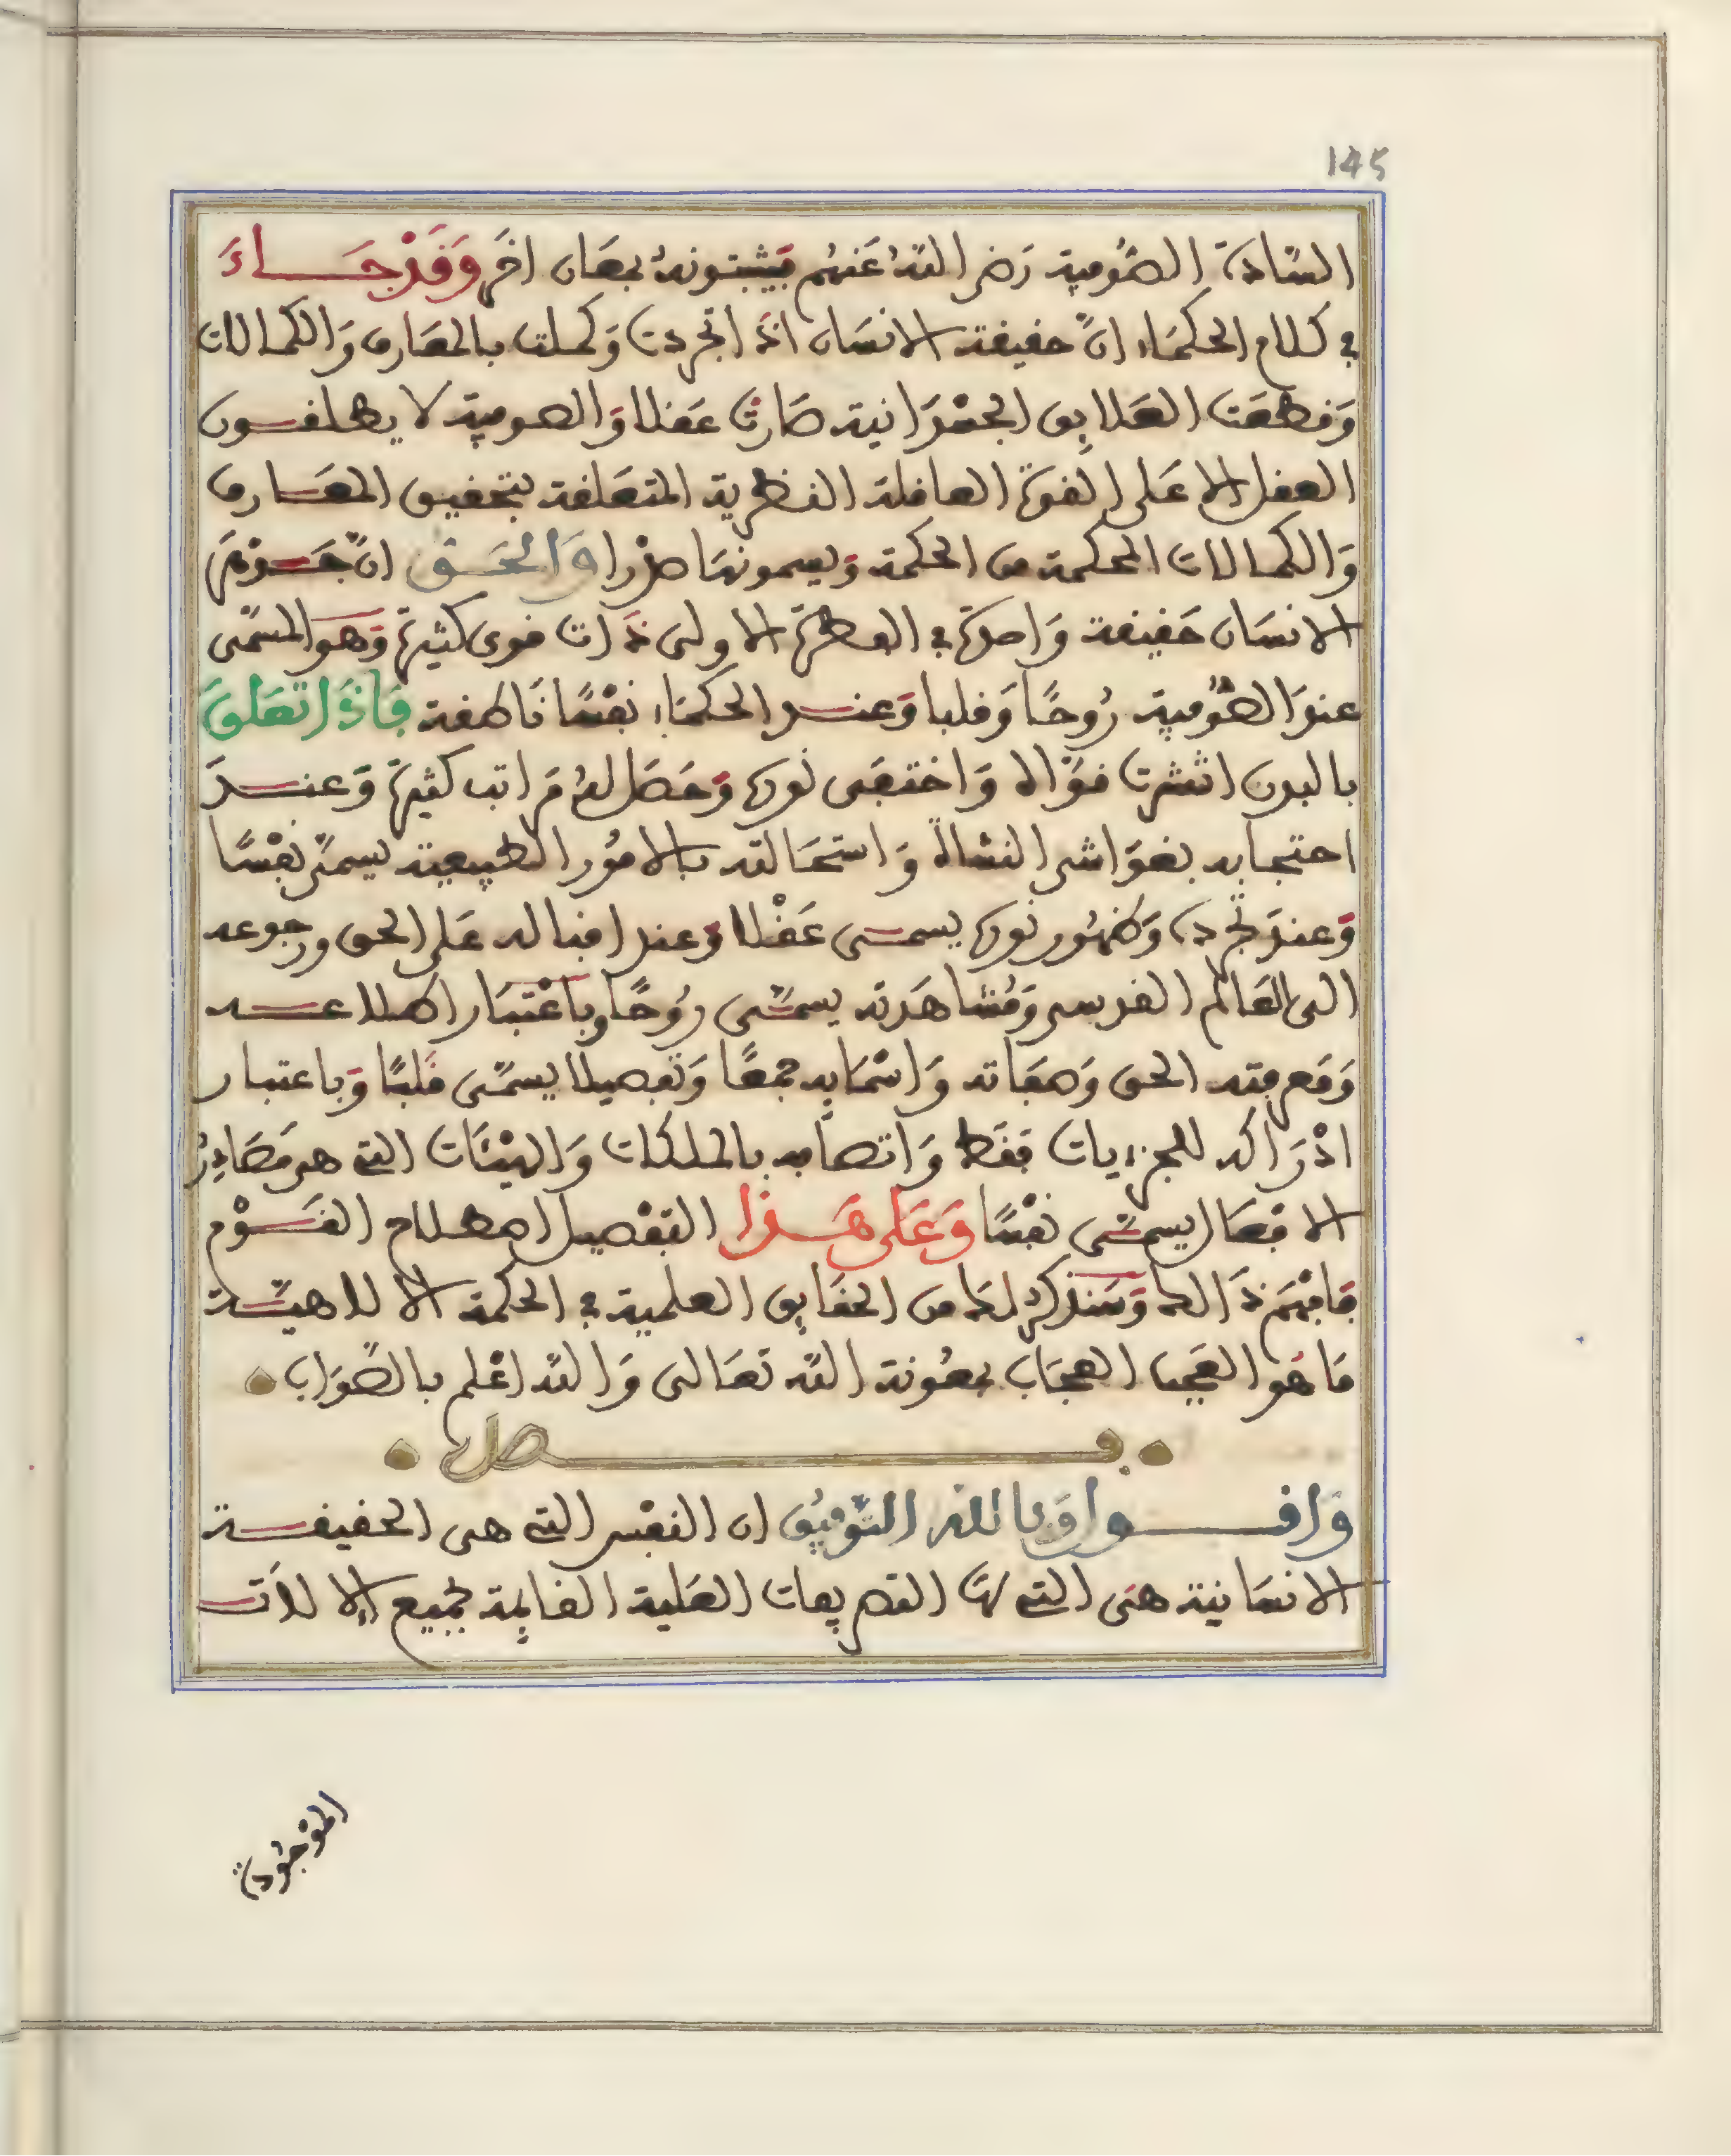 145
السّادة الصُّوفية رَضي اللهُ عَنهُم فيثبتونهُ بمعَان اخَر وَقَدْ جَــاءَ
في كلام الحكمَاء انّ حقيقة الانسَان اذَ اتجردت وَكملت بالمعَارف وَالكمالات
وَقطعَت العَلايق الجسْمَانية صَارت عَقلا وَالصوفية لا يطلقون
العقل الا عَلى القوة العاقلة النظرية المتعَلقة بتحقيق المعَارف
وَالكمالات المحكمة من الحكمة وَيسمونهَا صدْرا وَالحَق انّ جَوْهَر
الانسَان حَقيقة وَاحدة في الفطرة الاولى ذَات قوى كثيرة وَهوَ المسَمّى
عندَ الصُّوفية رُوحًا وَقلبا وَعند الحكمَاء نفْسًا نَاطقة فَاذَا تعَلقَ
بالبدن انتشرت قوَاه وَاختفى نوره وَحَصَل لهُ مرَاتب كثيرة وَعندَ
احتجابه بغوَاشي النشاة وَاستحَالته بالامُور الطبيعية يسمّى نفْسًا
وَعندَ تجرده وَظهُور نوره يسمى عَقْلا وَعند اقباله عَلى الحق ورجوعه
الى العَالم القدسي وَمُشاهَدته يسمّى رُوحًا وباعْتبَار اطلاعه
وَمَعرفته الحق وَصفاته وَاسْمَايه جمعًا وَتفصيلا يسمّى قلبًا وَباعتبار
ادْرَاكه للجزءيات فقَط وَاتصافه بالملكات وَالهيْئَات التي هي مَصَادِرُ
الافعَال يسمّى نفْسًا وَعَلى هَـذا التفْصيل اصطلاح القَوْم
فافْهَم ذَالك وَسَنذكر لكَ من الحقَايق العلمية في الحكمة الالاهيّة
مَا هُو العَجب العجَاب بمعُونة الله تعَالى وَالله اعْلم بالصّوَاب
فـصل
وَاقـول وَبالله التّوفيق ان النفْس التي هى الحقيقة
الانسَانية هىَ التي لهَا التصريفات العَلية القايمة بجميع الالات
الموْجُودة